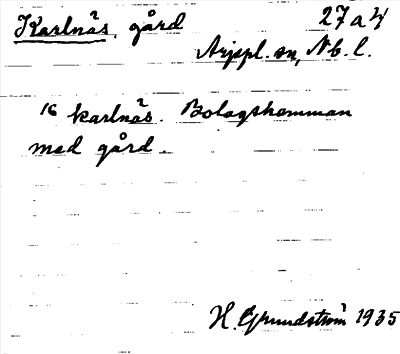 Karlnäs, gård 27a4
Arjepl. sn, Nb. l.
16 Karlnäs. Bolagshemman
med gård.
H. Grundström 1935